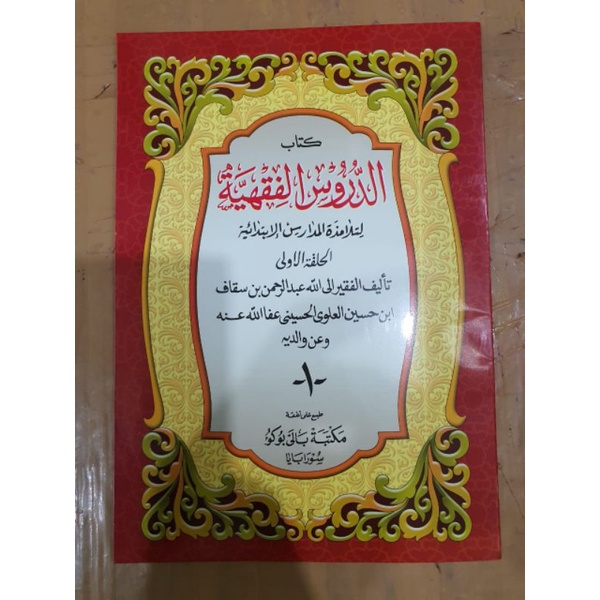 كتاب
الدُّرُوسُ الفِقْهِيَّة
لتلامذة المدارس الإبتدائية
الحلقة الأولى
تأليف الفقير إلى الله عبد الرحمن بن سقاف
ابن حسين العلوى الحسينى عفا الله عنه
وعن والديه
-١-
طبع على نفقة
مكتبة بالى بوكو
سورابايا